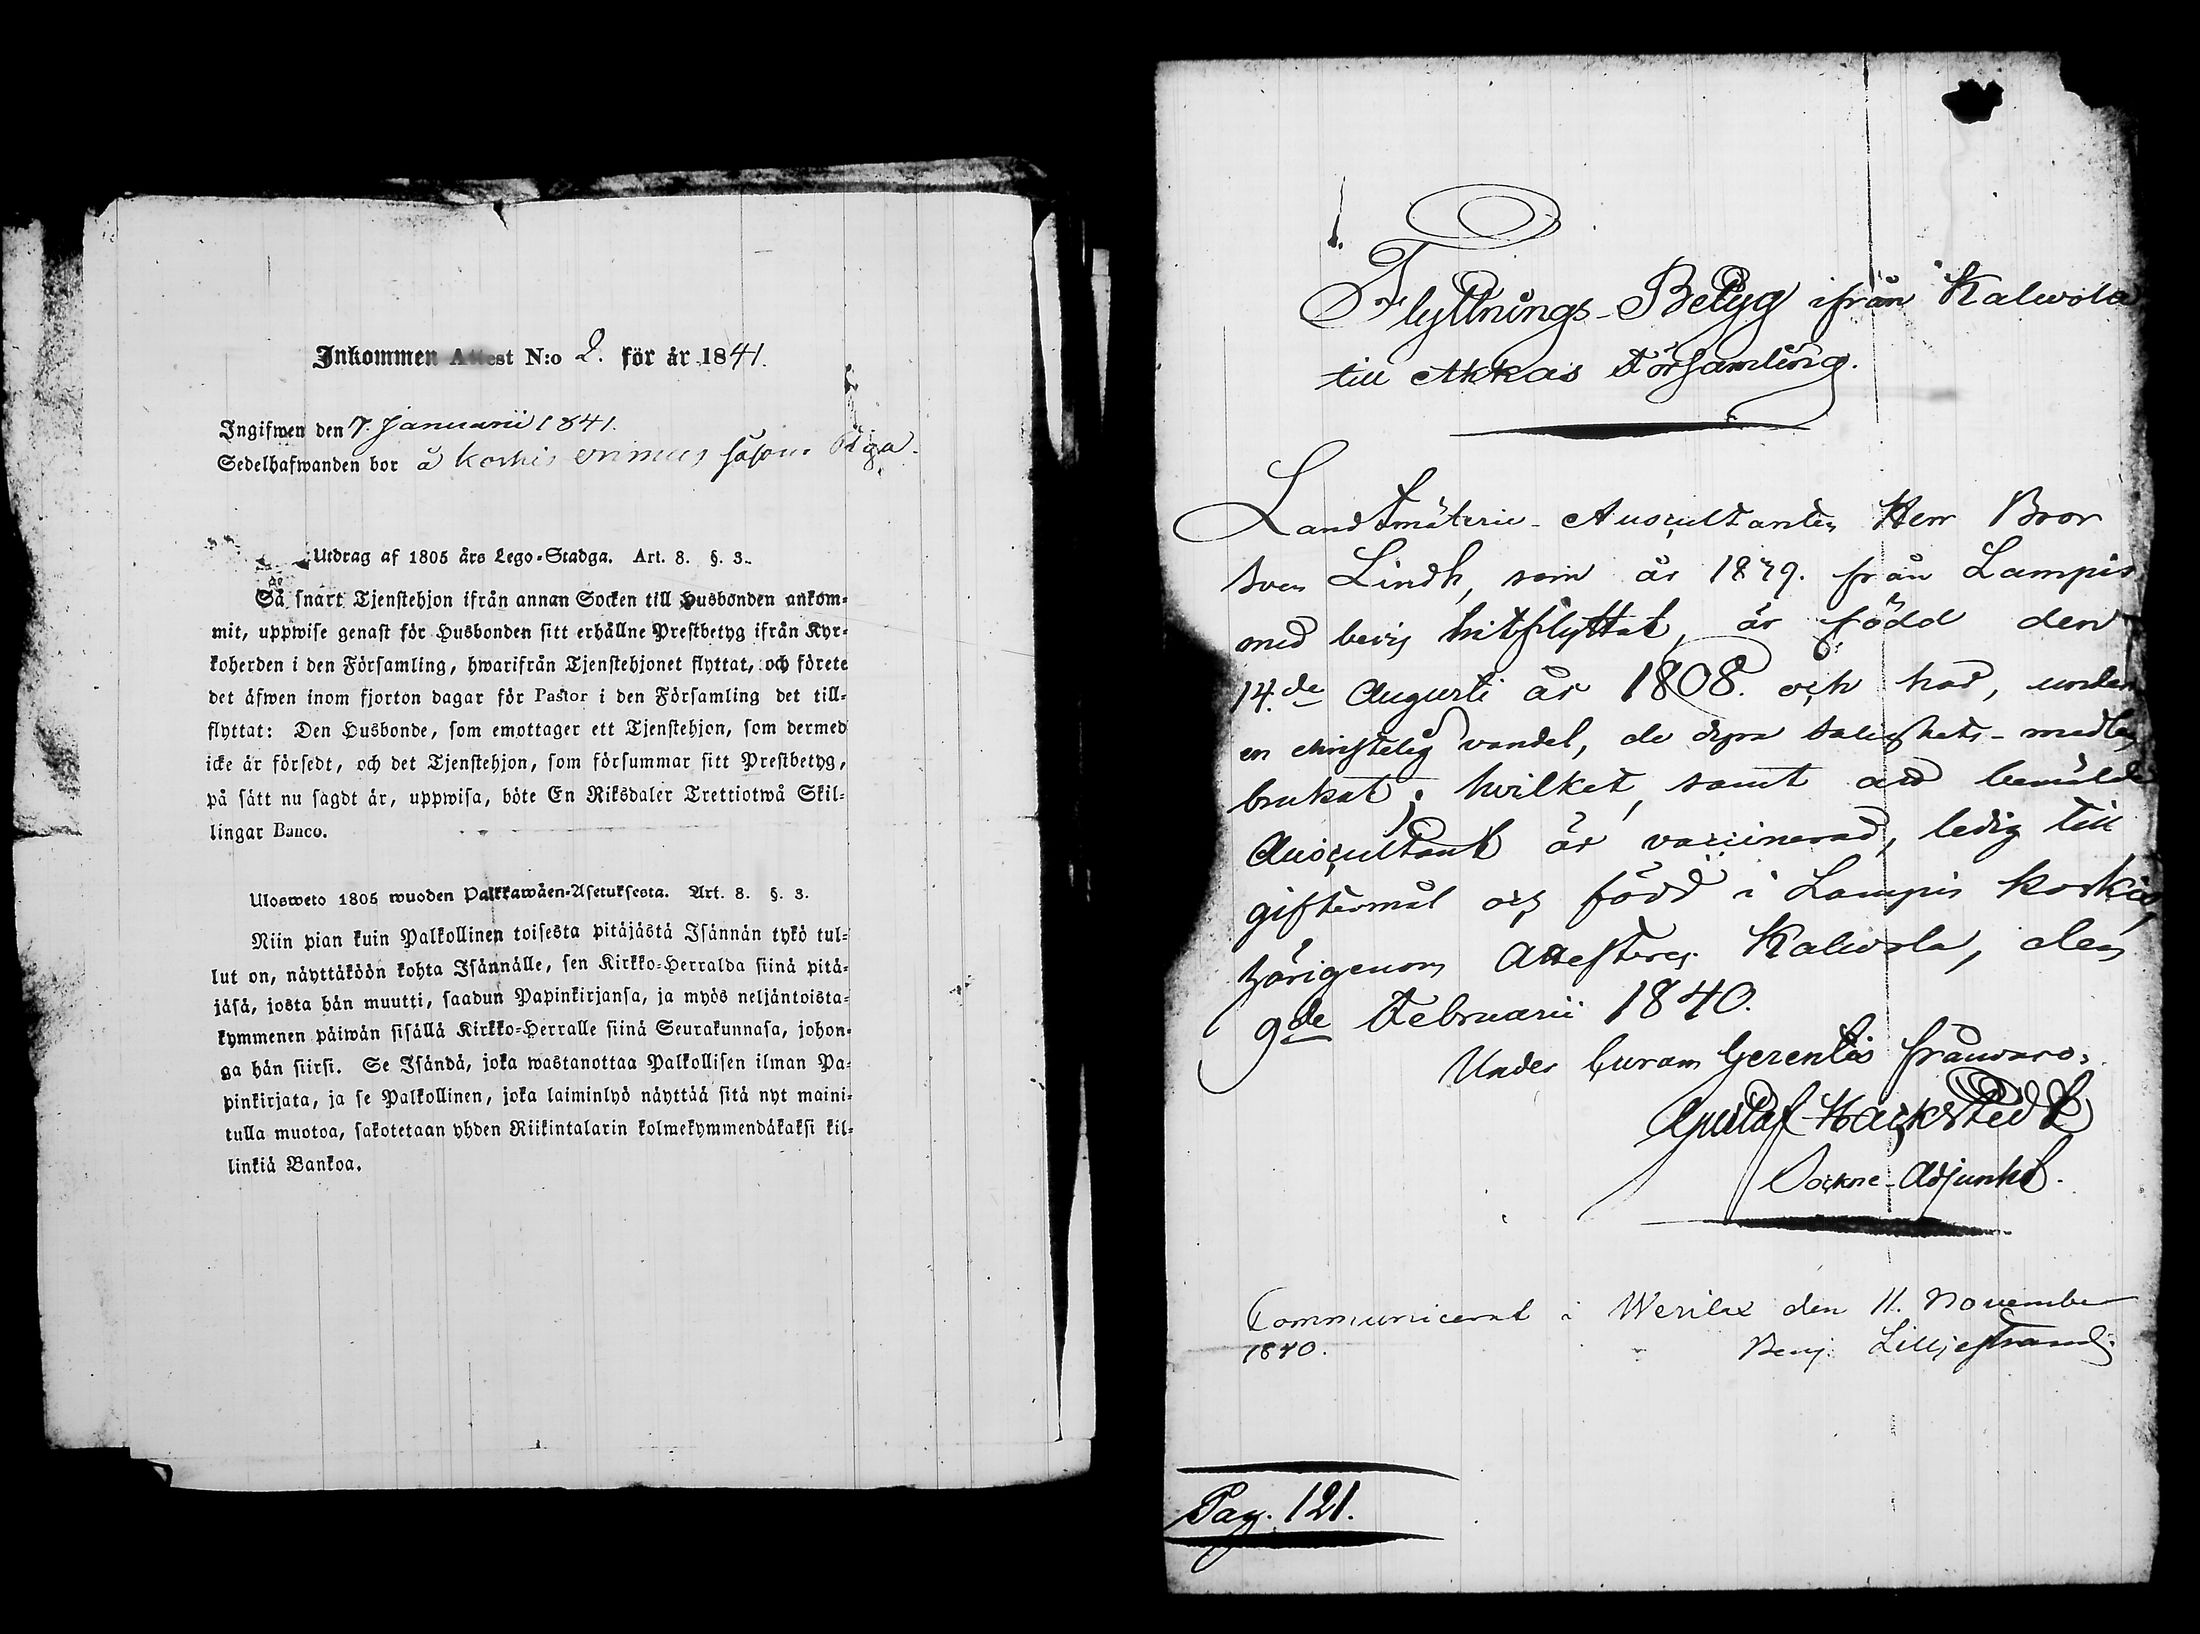 Inkommen Attest N:o 2. för år 1841.
Ingifwen den 7. Januarii 1841.
Sedelhafwanden bor å såsom Piga.
Utdrag af 1805 års Lego-Stadga. Art. 8. §. 3.
Så snart Tjenstehjon ifrån annan Socken till Husbonden ankom-
mit, uppwise genast för Husbonden sitt erhållne Prestbetyg ifrån Kyr-
koherden i den Församling, hwarifrån Tjenstehjonet flyttat, och förete
det äfwen inom fjorton dagar för Pastor i den Församling det till-
flyttat: Den Husbonde, som emottager ett Tjenstehjon, som dermed
icke är försedt, och det Tjenstehjon, som försummar sitt Prestbetyg,
på sätt nu sagdt är, uppwisa, böte En Riksdaler Trettiotwå Skil-
lingar Banco.
Ulosweto 1805 wuoden Palkkawäen-Asetuksesta. Art. 8. §. 3.
Niin pian kuin Palkollinen toisesta pitäjästä Isännän tykö tul-
lut on, näyttäköön kohta Isännälle, sen Kirkko-Herralda siinä pitä-
jäsä, josta hän muutti, saadun Papinkirjansa, ja myös neljäntoista-
kymmenen päiwän sisällä Kirkko-Herralle siinä Seurakunnasa, johon-
ga hän siirsi. Se Isändä, joka wastanottaa Palkollisen ilman Pa-
pinkirjata, ja se Palkollinen, joka laiminlyö näyttää sitä nyt maini-
tulla muotoa, sakotetaan yhden Riikintalarin kolmekymmendäkaksi kil-
linkiä Bankoa.
1.
Flyttnings-Betyg ifrån Kalwola
till Akkas Församling.
Landtmäterie-Auscultanten Herr Bror
Sven Lindh, som år 1839. från Lampis
med bevis hitflyttat, är född den
14.de Augusti år 1808. och har, under
en christelig vandel, de dyra salighets-medlen
brukat; hvilket, samt att bemälde
Auscultant är vaccinerad, ledig till
giftermål och född i Lampis Koskis,
härigenom attesteres. Kalwola, den
9de Februarii 1840.
Under Curam Gerentis frånvaro:
Gustaf Hackstedt
Sockne-Adjunkt.
Communicerat i Werilax den 11. November
1840. Benj. Lilljestrand.
Pag. 121.